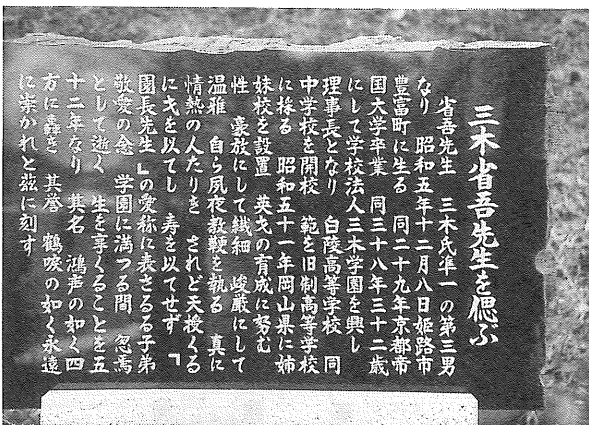 三木省吾先生を偲ぶ
省吾先生 三木氏凖一の第三男
なり 昭和五年十二月八日姫路市
豊富町に生る 同二十九年京都帝
国大学卒業 同三十八年三十二歳
にして学校法人三木学園を興し
理事長となり 白陵高等学校 同
中学校を開校 範を旧制高等学校
に採る 昭和五十一年岡山県に姉
妹校を設置 英才の育成に努む
性 豪放にして繊細 峻厳にして
温雅 自ら夙夜教鞭を執る 真に
情熱の人たりき されど天授くる
に才を以てし 寿を以てせず 「
園長先生」の愛称に表さるる子弟
敬愛の念 学園に満つる間 忽焉
として逝く 生を享くることを五
十二年なり 其名 鴻声の如く四
方に轟き 其誉 鶴唳の如く永遠
に崇かれと茲に刻す